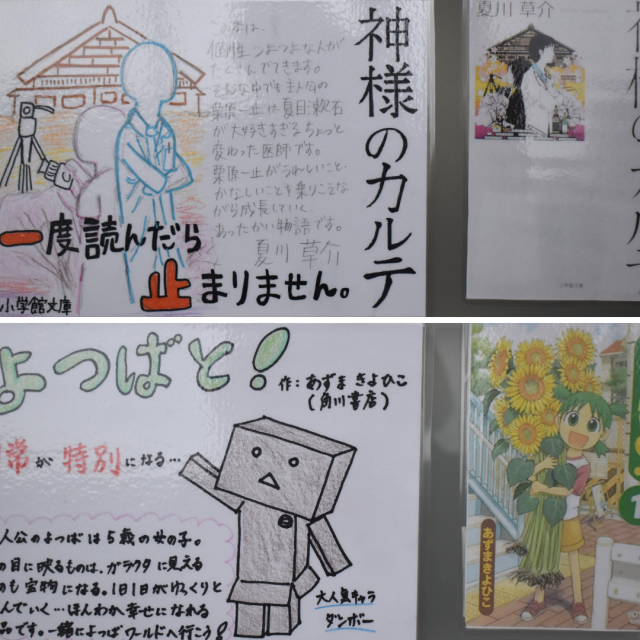 個性つよつよな人が
栗原一止は夏目漱石
が大好きすぎるちょっと
変わった医師です。
栗原一止がうれしいこと・
かなしいことを乗りこえな
がら成長していく
あったかい物語です。
夏川草介
神様のカルテ
一度読んだら
止まりません。
小学館文庫
夏川草介
よつばと!
作:あずまきよひこ
(角川書店)
常が特別になる…
人公のよつばは5歳の女の子。
の目に映るものは、ガラクタに見える
も宝物になる。1日1日がゆっくりと
んでいく…ほんわか幸せになれる
品です。一緒によつばワールドへ行こう!
大人気キャラ
ダンボー
あずまきよひこ